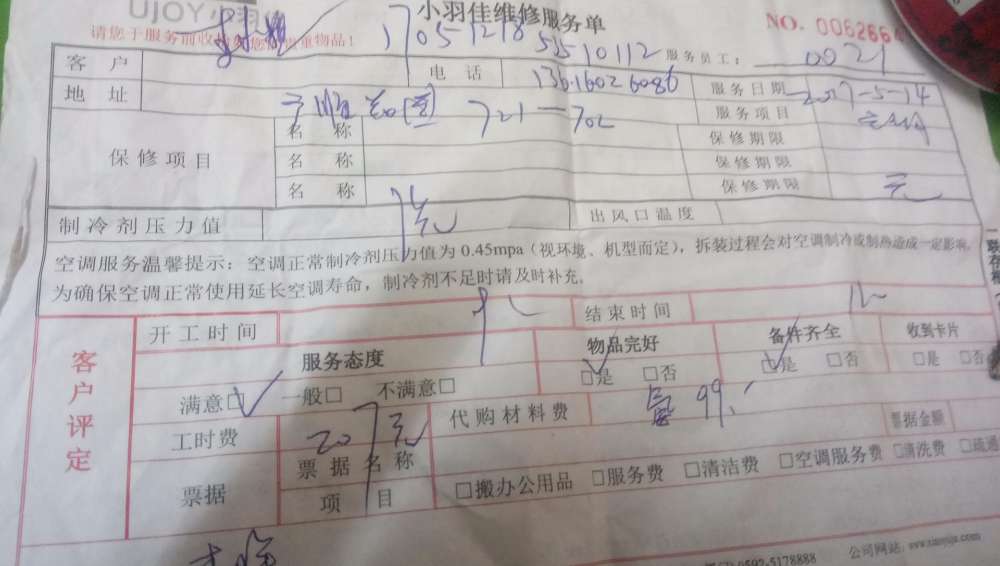 UJOY 小羽佳
小羽佳维修服务单
NO. 006266
请您于服务前收检好您的贵重物品!
17051218
5510112
服务员工: 0021
客户
电话 13616026086
服务日期 2017-5-14
地址
721-702
服务项目
保修项目
名称
保修期限
名称
保修期限
名称
保修期限 元
制冷剂压力值
出风口温度
空调服务温馨提示: 空调正常制冷剂压力值为 0.45mpa (视环境、机型而定), 拆装过程会对空调制冷或制热造成一定影响。
为确保空调正常使用延长空调寿命, 制冷剂不足时请及时补充。
客户评定
开工时间
结束时间
服务态度
物品完好
备件齐全
收到卡片
满意□ 一般□ 不满意□
□是 □否
□是 □否
□是 □否
工时费 20元
代购材料费 99
票据金额
票据
票据名称
项目
□搬办公用品 □服务费 □清洁费 □空调服务费 □清洗费 □疏通
0592-5178888
公司网站: www.xiaoyujia.com